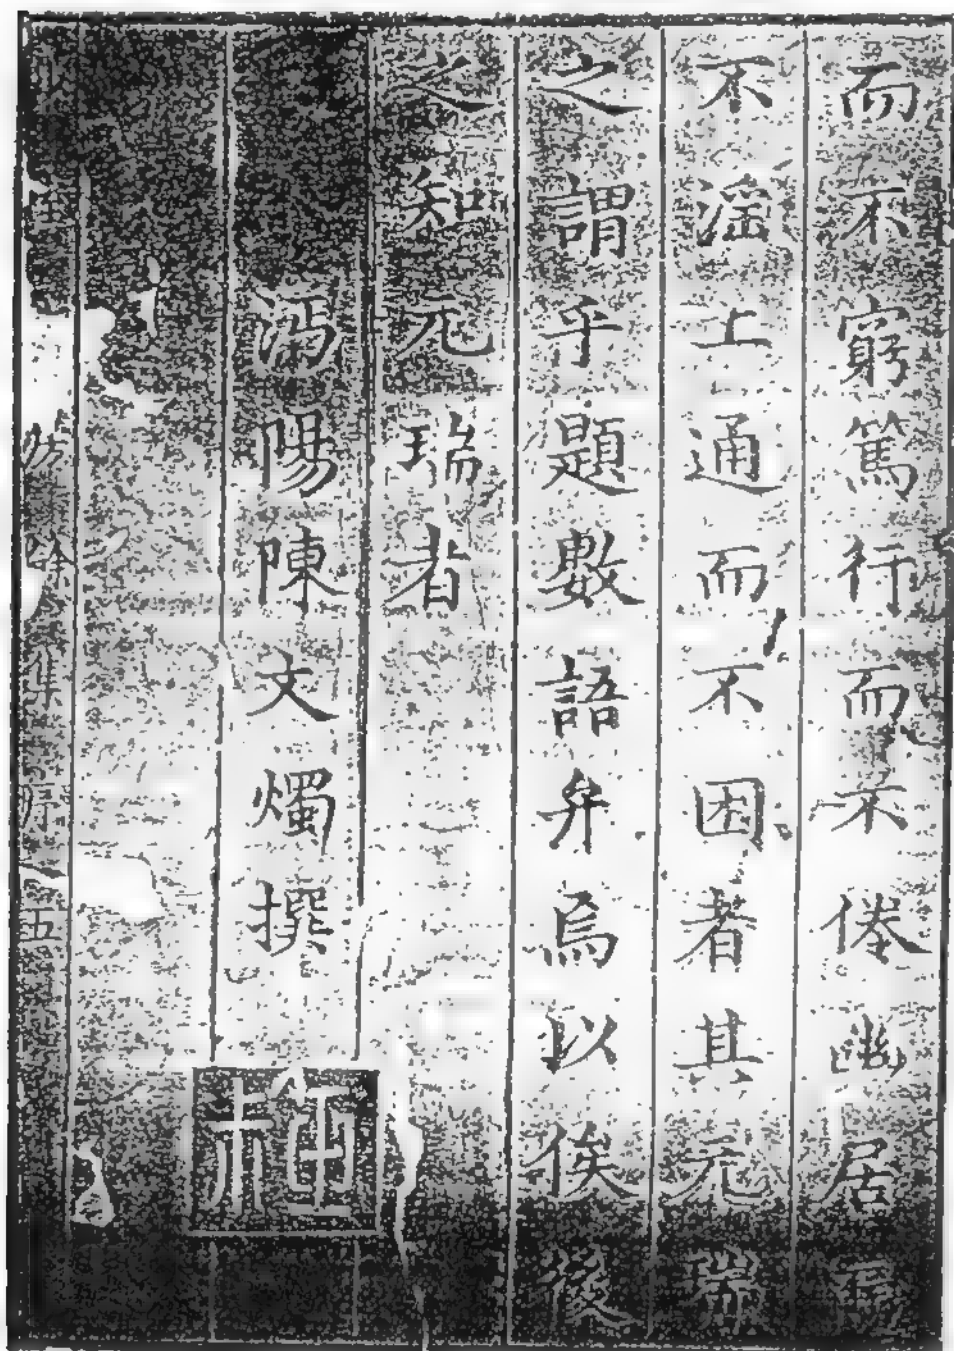 而不窮篤行而不倦幽居而
不滛上通而不困者其元瑞
之謂乎題數語弁焉以俟後
之知元瑞者
沔陽陳文燭撰
序 五